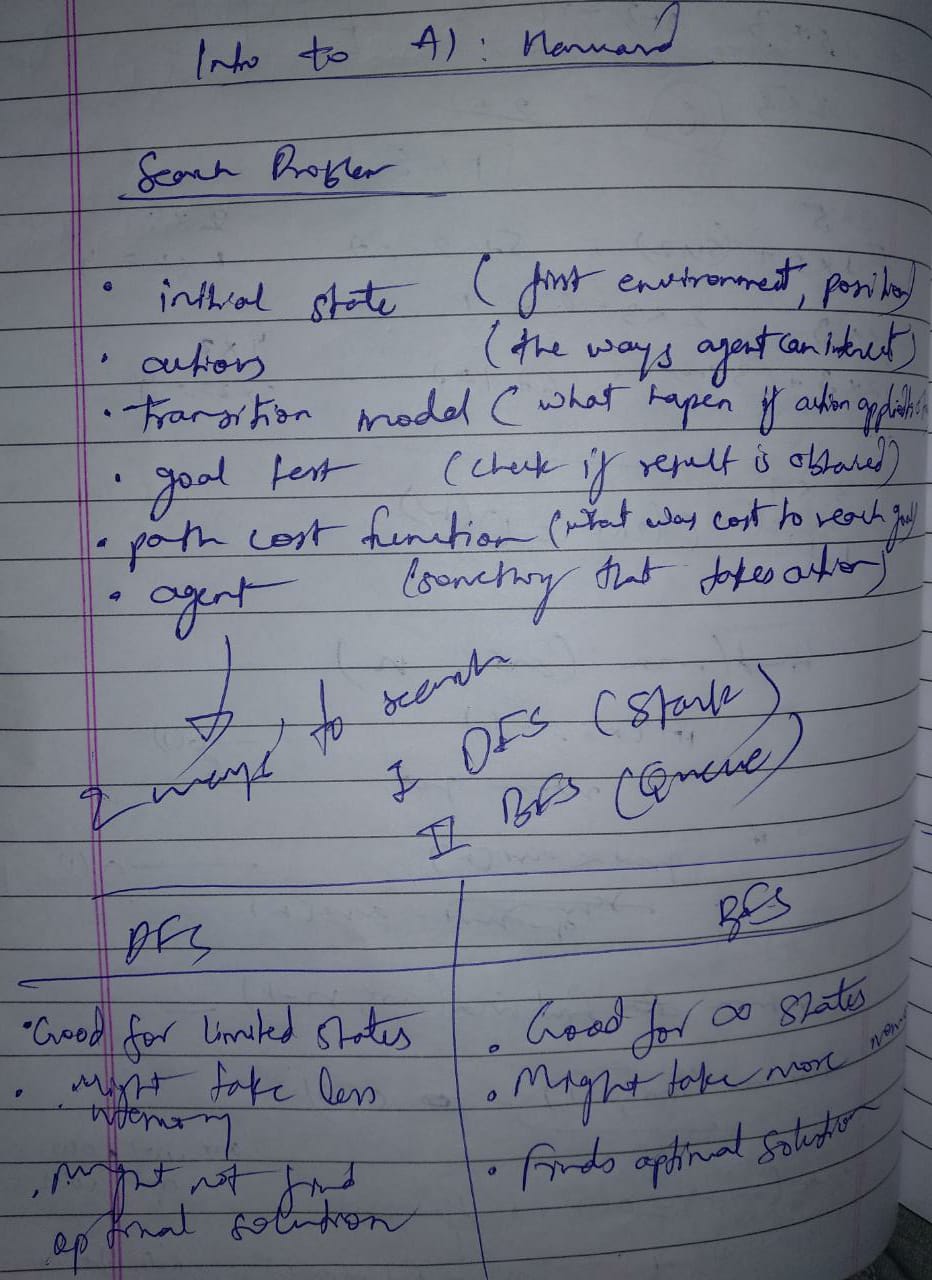 Intro to AI: Harvard
Search Problem
• initial state (first environment, position)
• actions (the ways agent can interact)
• transition model (what hapen if action
• goal test (check if result is obtained)
• path cost function (what was cost to reach goal)
• agent (something that takes action)
2 ways to search
I DFS (Stack)
II BFS (Queue)
DFS
• Good for limited states
• Might take less
memory
• Might not find
optimal solution
BFS
• Good for ∞ states
• Might take more
• Finds optimal solution